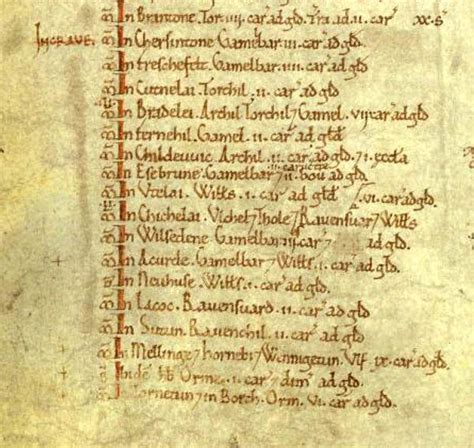 In Brantone. Tor. iiii. car' ad gld. Tra ad. ii. car' xx. s'
IN CRAVE.
In Chersintone. Gamelbar. iii. car' ad gld.
In Treschefelt. Gamelbar. iiii. car' ad gld.
In Cutnelai. Torchil. ii. car' ad gld.
In Bradelei. Archil. Torchil 7 Gamel. vii. car' ad gld.
In fernehil. Gamel. ii. car' ad gld
In Childeuuic. Archil. ii. car' ad gld. 7 i. eccla
In Esebrune. Gamelbar. ii. car' 7 ii. bou' ad gld.
In Vtelai. Wills. i. car' ad gld. vi. car' ad gld.
In Chichelai. Vlchel 7 Thole 7 Rauensuar 7 Wills
In Wilsedene. Gamelbar. iii. car' 7 ad gld.
In Acurde. Gamelbar 7 Wills. i. car' ad gld.
In Neuhuse. Wills. i. car' ad gld.
In Lacoc. Rauensuard. ii. car' ad gld.
In Sutun. Rauenchil. ii. car' ad gld.
In Mellinge 7 hornebi 7 Wennigetun. Vlf. ix. car' ad gld.
Inde hb Orme. i. car' 7 dim' ad gld.
ornetun 7 in Borch. Orm. vi. car' ad gld.